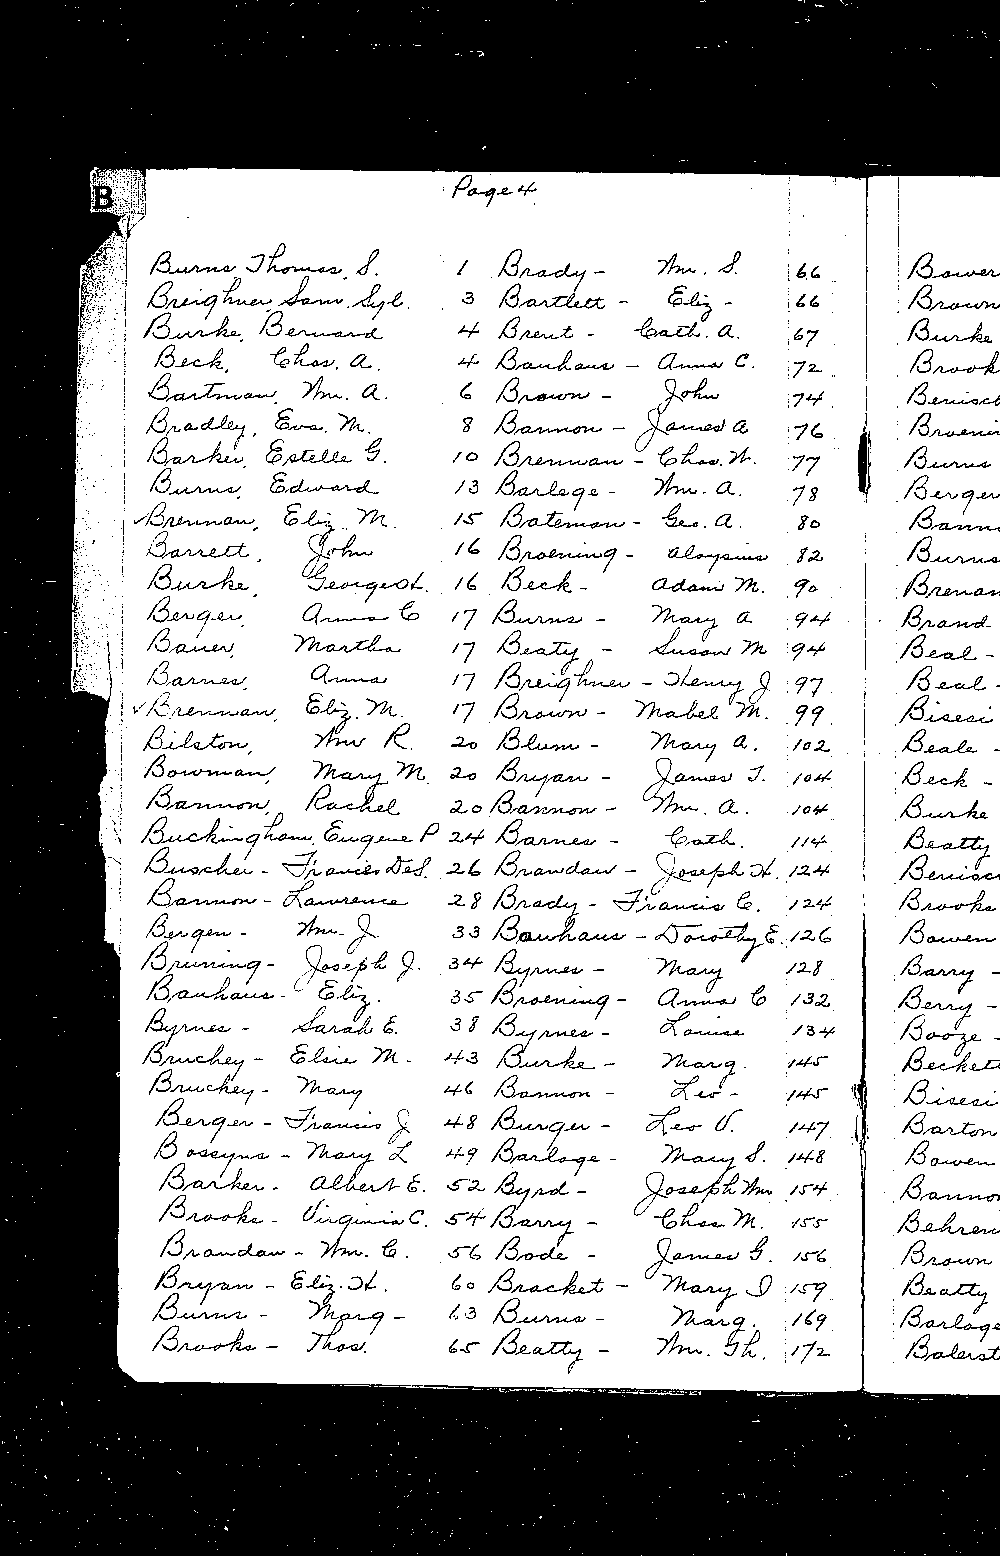 B
Page 4
Burns, Thomas, S. 1 Brady - Wm. S. 66
Breighner Sam. Syl. 3 Bartlett - Eliz - 66
Burke, Bernard 4 Brent - Cath. A. 67
Beck, Chas. A. 4 Bauhaus - Anna C. 72
Bartman, Wm. A. 6 Brown - John 74
Bradley, Eva. M. 8 Bannon - James A 76
Barker, Estelle G. 10 Brennan - Chas. W. 77
Burns, Edward 13 Barlage - Wm. A. 78
✓Brennan, Eliz. M. 15 Bateman - Geo. A. 80
Barrett, John 16 Broening - Aloysius 82
Burke, George H. 16 Beck - Adam M. 90
Berger, Anna C 17 Burns - Mary A 94
Bauer, Martha 17 Beaty - Susan M 94
Barnes, Anna 17 Breighner - Henry J 97
✓Brennan, Eliz. M. 17 Brown - Mabel M. 99
Bilston, Wm R. 20 Blum - Mary A. 102
Bowman, Mary M. 20 Bryan - James T. 104
Bannon, Rachel 20 Bannon - Wm. A. 104
Buckingham, Eugene P 24 Barnes - Cath. 114
Buscher - Francis DeS. 26 Brandau - Joseph H. 124
Bannon - Lawrence 28 Brady - Francis C. 124
Bergen - Wm. J 33 Bauhaus - Dorothy E. 126
Bruning - Joseph J. 34 Byrnes - Mary 128
Bauhaus - Eliz. 35 Broening - Anna C 132
Byrnes - Sarah E. 38 Byrnes - Louise 134
Bruchey - Elsie M. 43 Burke - Marg. 145
Bruckey - Mary 46 Bannon - Leo - 145
Berger - Francis J 48 Burger - Leo V. 147
Bossyns - Mary L 49 Barlage - Mary S. 148
Barker - Albert E. 52 Byrd - Joseph Wm 154
Brooks - Virginia C. 54 Barry - Chas M. 155
Brandau - Wm. C. 56 Bode - James G. 156
Bryan - Eliz. H. 60 Bracket - Mary J 159
Burns - Marg - 63 Burns - Marg. 169
Brooks - Thos. 65 Beatty - Wm. Gh. 172
Bower
Brown
Burke
Brook
Benisch
Broenin
Burns
Berger
Bann
Burns
Brenan
Brand
Beal -
Beal -
Bisesi
Beale -
Beck -
Burke
Beatty
Benisc
Brooks
Bowen
Barry -
Berry -
Booze -
Beckett
Bisesi
Barton
Bowen
Bannon
Behren
Brown
Beatty
Barlage
Balerst